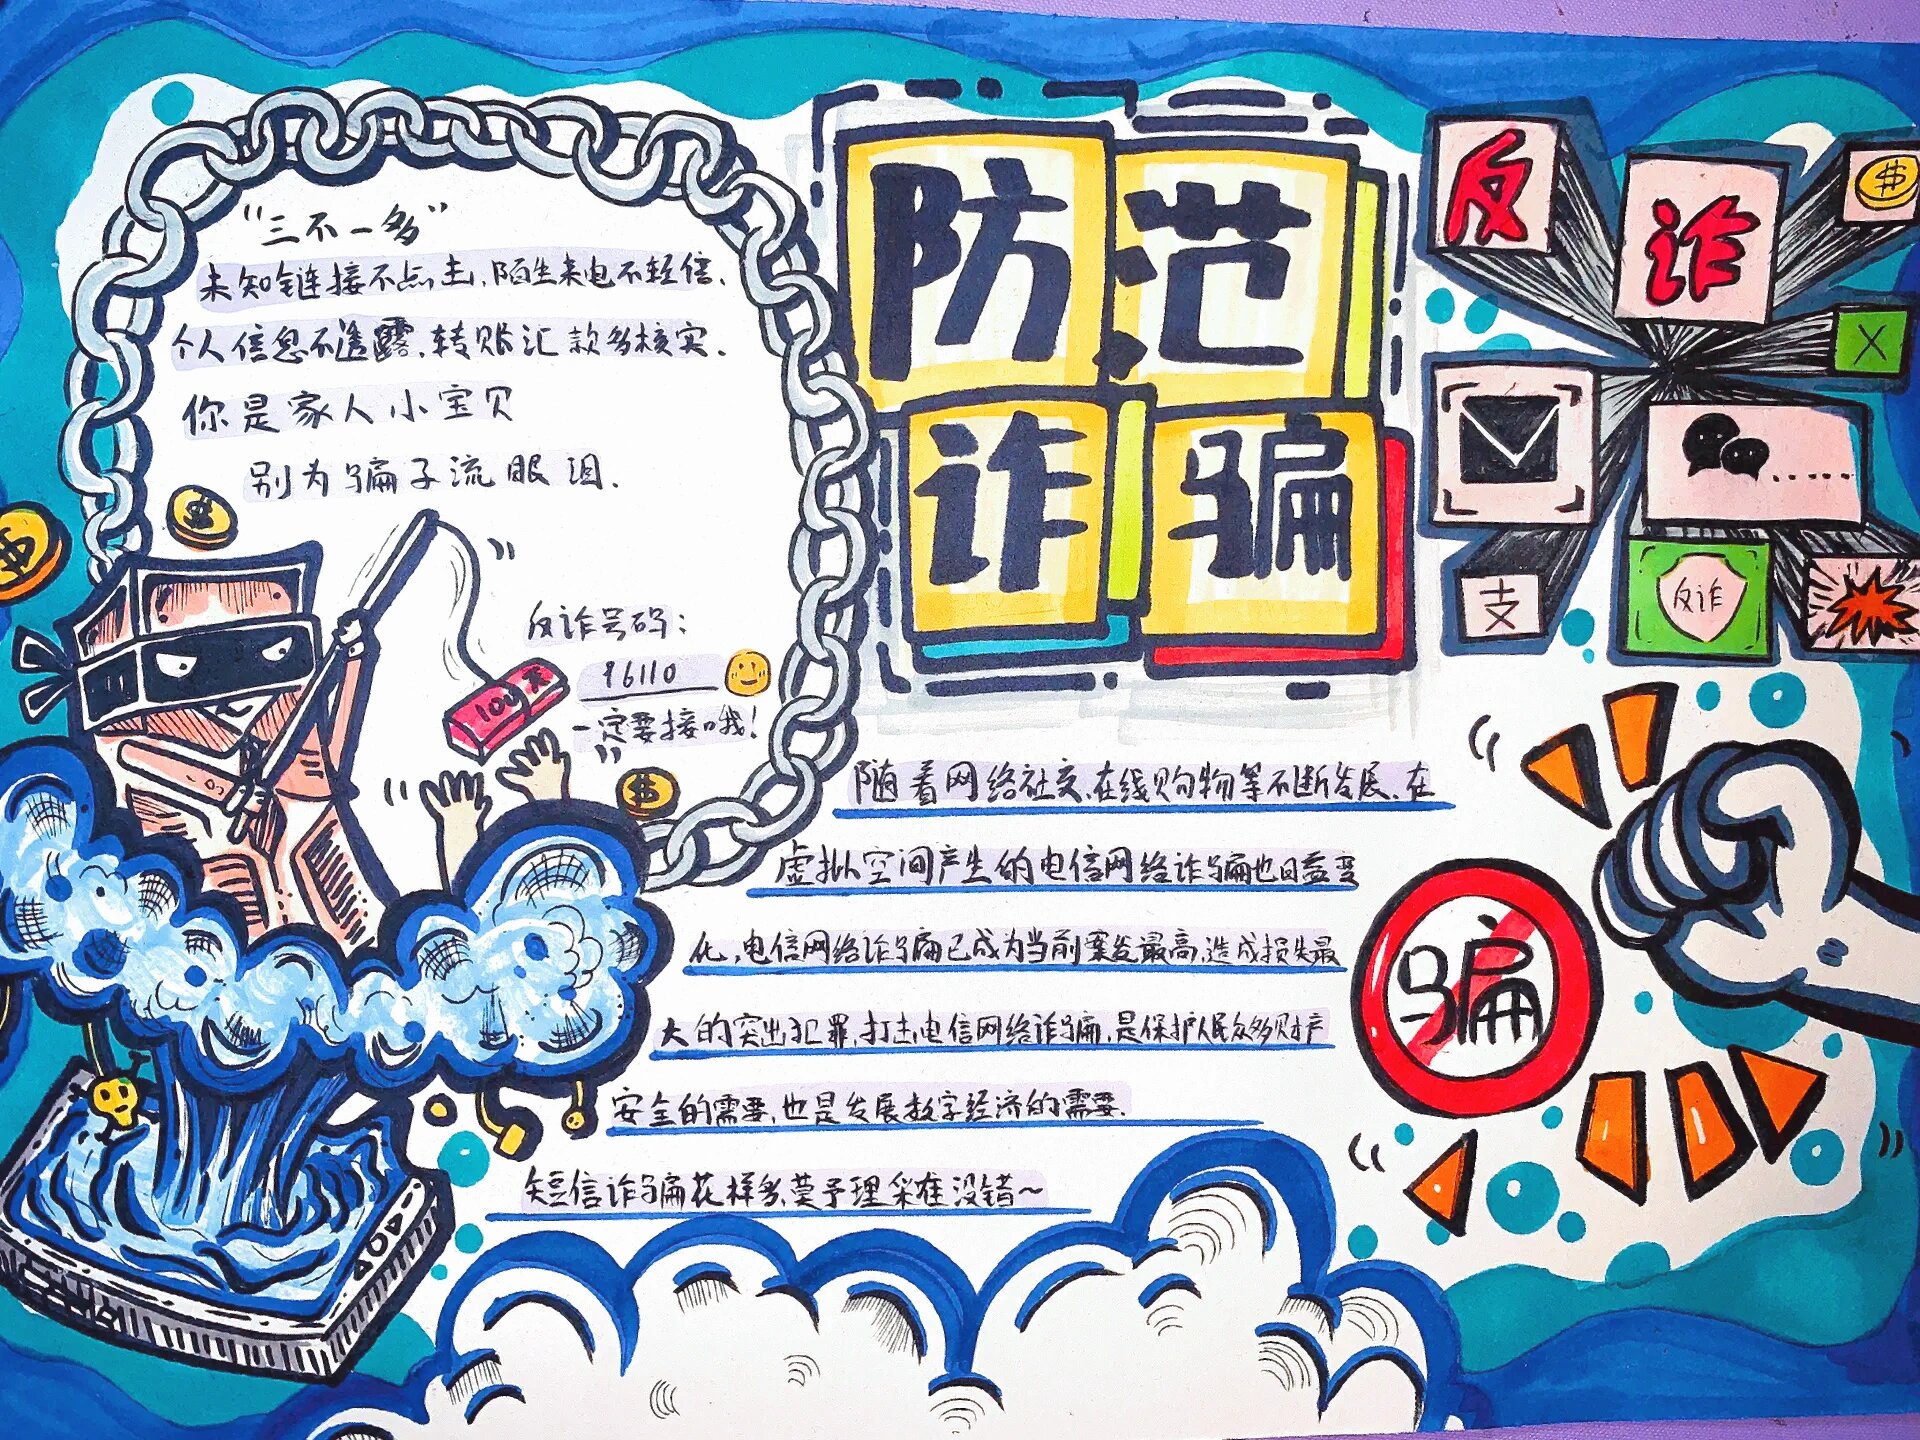 防范
诈骗
“三不一多”
未知链接不点击、陌生来电不轻信、
个人信息不透露、转账汇款多核实．
你是家人小宝贝
别为骗子流眼泪．
反诈号码：
96110
一定要接哦！
100天
反诈
$
X
支
反诈
随着网络社交、在线购物等不断发展、在
虚拟空间产生的电信网络诈骗也日益变
化，电信网络诈骗已成为当前案发最高、造成损失最
大的突出犯罪，打击电信网络诈骗，是保护人民众多财产
安全的需要，也是发展数字经济的需要．
短信诈骗花样多、莫予理采准没错～
骗